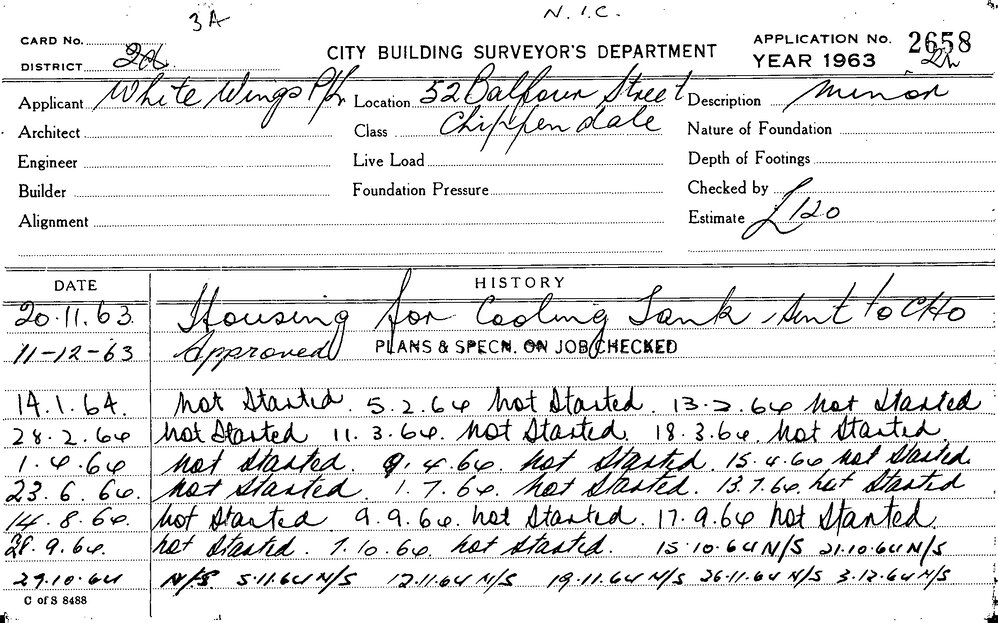 3A N.I.C.
CARD No. CITY BUILDING SURVEYOR'S DEPARTMENT APPLICATION No. 2658
DISTRICT YEAR 1963
Applicant White Wings P/L Location 52 Balfour Street Description Minor
Architect Class Chippendale Nature of Foundation
Engineer Live Load Depth of Footings
Builder Foundation Pressure Checked by
Alignment Estimate £120
DATE HISTORY
20.11.63. Housing for Cooling Tank, sent to CHO
11-12-63 Approved PLANS & SPECN. ON JOB CHECKED
14.1.64. not started. 5.2.64 not started. 13.2.64 not started
28.2.64 not started 11.3.64. not started. 18.3.64. not started.
1.4.64 not started. 9.4.64. not started. 15.4.64 not started.
23.6.64. not started. 1.7.64. not started. 13.7.64. not started
14.8.64. not started. 9.9.64. not started. 17.9.64 not started.
28.9.64. not started. 7.10.64. not started. 15.10.64 N/S 21.10.64 N/S
29.10.64 N/S 5.11.64 N/S 12.11.64 N/S 19.11.64 N/S 26.11.64 N/S 3.12.64 N/S
C of S 8488